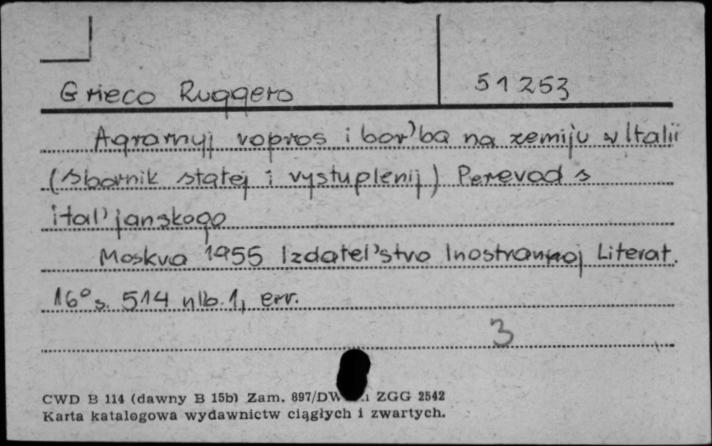 Grieco Ruggero 51253
Agrarnyj vopros i bor'ba na zemiju v Italii
(sbornik statej i vystuplenij) Perevod s
ital'janskogo
Moskva 1955 Izdatel'stvo Inostrannoj Literat.
16° s. 514 nlb. 1, err.
3
CWD B 114 (dawny B 15b) Zam. 897/DW ZGG 2542
Karta katalogowa wydawnictw ciągłych i zwartych.